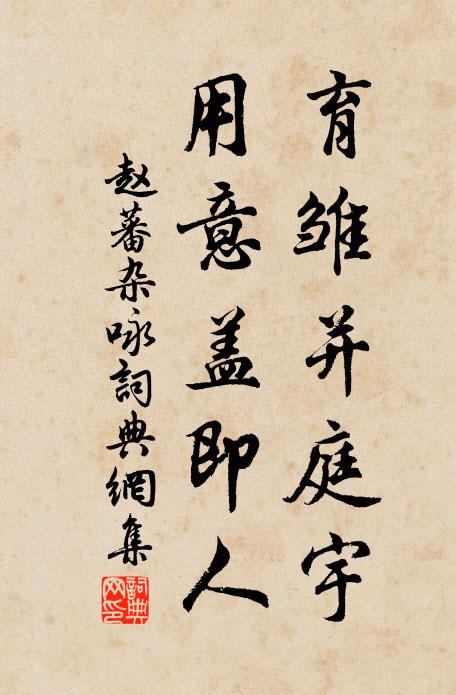 育雏并庭宇
用意盖即人
赵蕃杂咏詞典網集
詞典
网印